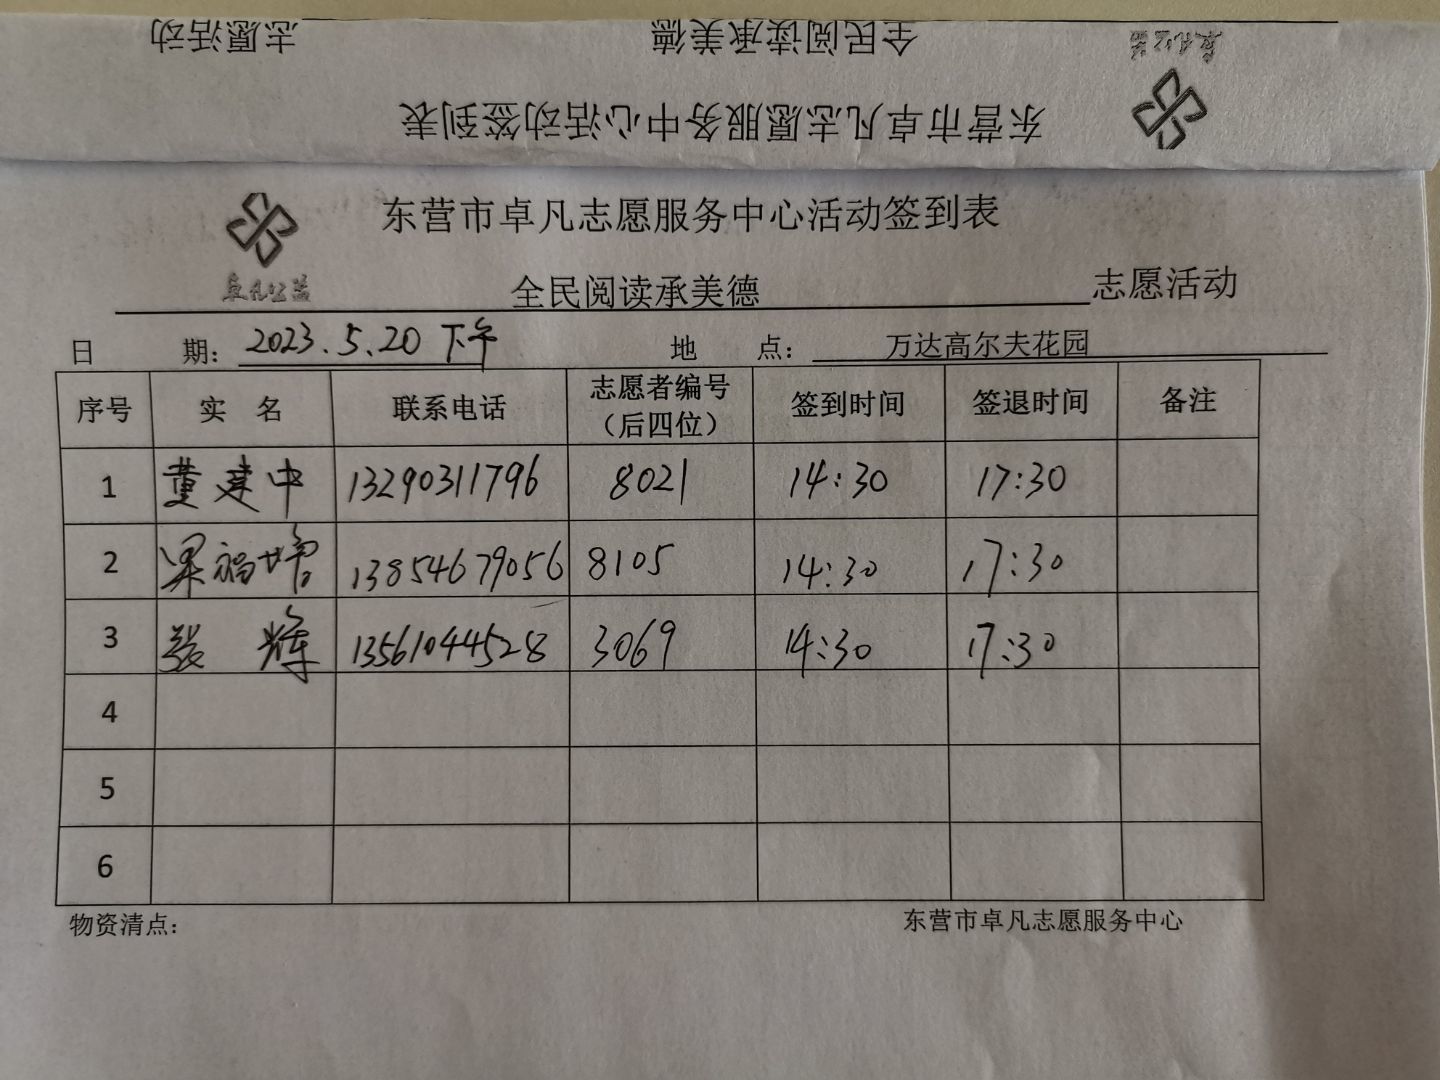 志愿活动 全民阅读承美德 卓凡公益
东营市卓凡志愿服务中心活动签到表
东营市卓凡志愿服务中心活动签到表
卓凡公益 全民阅读承美德 志愿活动
日 期：2023.5.20 下午 地 点：万达高尔夫花园
序号 实 名 联系电话 志愿者编号（后四位） 签到时间 签退时间 备注
1 董建中 13290311796 8021 14:30 17:30
2 梁福增 13854679056 8105 14:30 17:30
3 张 辉 13561044528 3069 14:30 17:30
4
5
6
物资清点： 东营市卓凡志愿服务中心